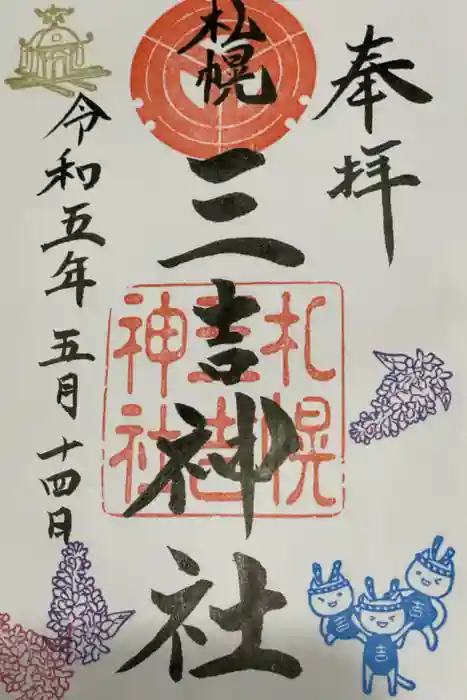 奉拝
札幌
三吉神社
札幌
三吉
神社
令和五年五月十四日
吉
吉
吉